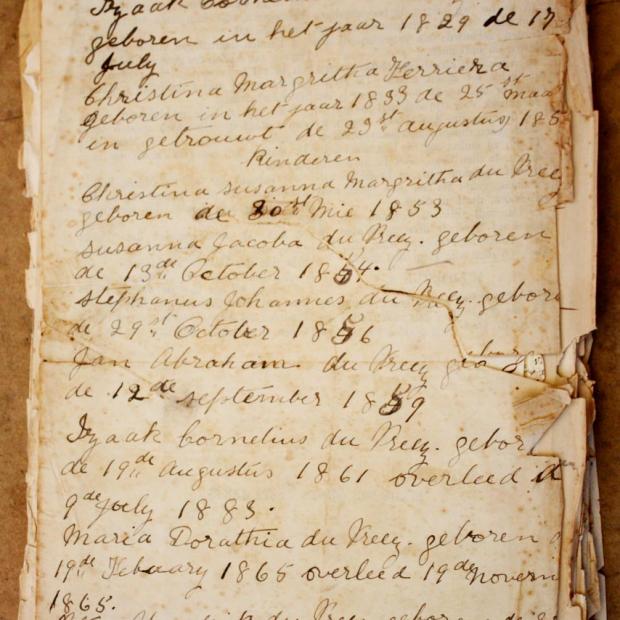 Izaak Corne
geboren in het jaar 1829 de 17
July
Christina Margritha Ferriera
geboren in het jaar 1833 de 25st maa
en getrouwt de 29st augustus 185
Kinderen
Christina susanna Margritha du Preez
geboren de 30st Mie 1853
susanna Jacoba du Preez. geboren
de 13de October 1854.
stephanus Johannes du Preez. gebore
de 29st October 1856
Jan Abraham du Preez gebor
de 12de september 1859
Izaak Cornelius du Preez. gebor
de 19de augustus 1861 overleed d
9de July 1883.
Maria Dorathia du Preez. geboren d
19de Febuary 1865 overleed 19de Novem
1865.
du Preez geboren de